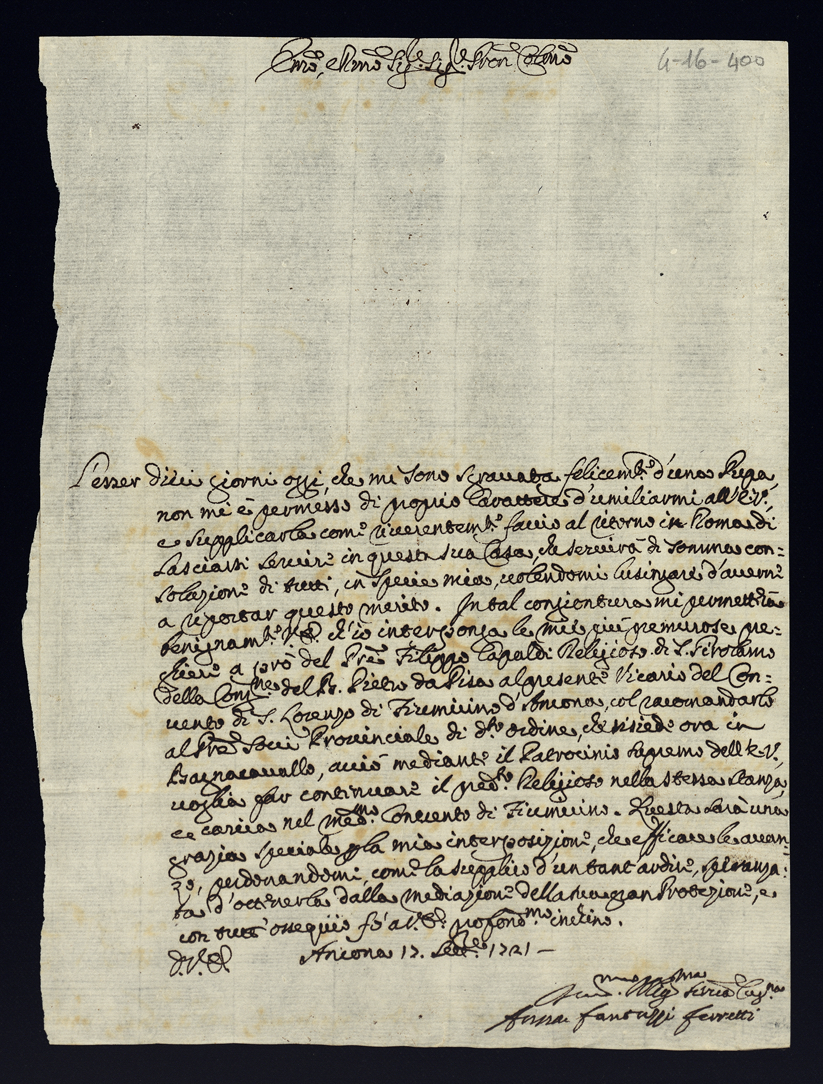 Em̃o, e Rm̃o Sig.r Sig.r Pron Colm̃o
4-16-400
L'esser dieci giorni oggi, che mi sono sgravata felicem.te d'una Puga,
non mi è permesso di proprio Carattere d'umiliarmi all'E.V.,
e supplicarla come riverentem.te faccio al ritorno in Roma di
lasciarsi servire in questa sua Casa, che servirà di somma con=
solazione di tutti, in specie mia, volendomi lusingare d'avere
a riportar questo merito. In tal congiontura mi permetterà
benignam.te V.E. ch'io interponga le mie più premurose pre=
ghiere a prò del Pr̃e Filippo Religioso di S. Girolamo
della Cong.ne del B. Pietro da Pisa al presente Vicario del Con=
vento di S. Lorenzo di Fiumicino d'Ancona, col racomandarlo
al Pr̃e Provinciale di d.to ordine, che risiede ora in
Bagnacavallo, acciò mediante il Patrocinio supremo dell'E.V.,
voglia far continuare il pred.to Religioso nella stessa stanza,
e carica nel med.mo Convento di Fiumicino. Questa sarà una
grazia speciale la mia interposizione, che efficace le avan=
zo, perdonandomi, come la supplico d'un tant'ardire, speranza=
ta d'ottenerla dalla mediazione della sua gran Protezione, e
con tutt'ossequio fò a V.E. profond.mo inchino.
D.V.E. Ancona 17. Sett.e 1721 —
Obblig.ma serva
Anna Fantuzzi Ferretti